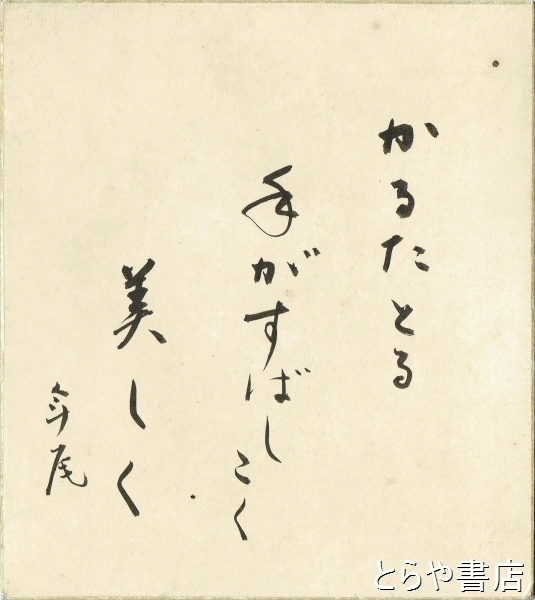 かるたとる
手がすばしこく
美しく
斗尾
とらや書店